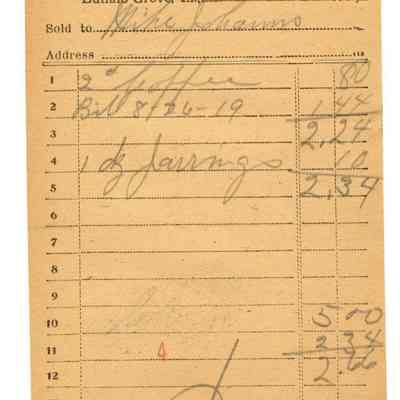 Buffalo Grove,
Sold to Mike Johanns
Address
1 2# Coffee 80
2 Bil 8/26-19 1.44
3 2,24
4 1 dz Jar rings 10
5 2,34
6
7
8
9
10 5 00
11 4 2 34
12 2.66